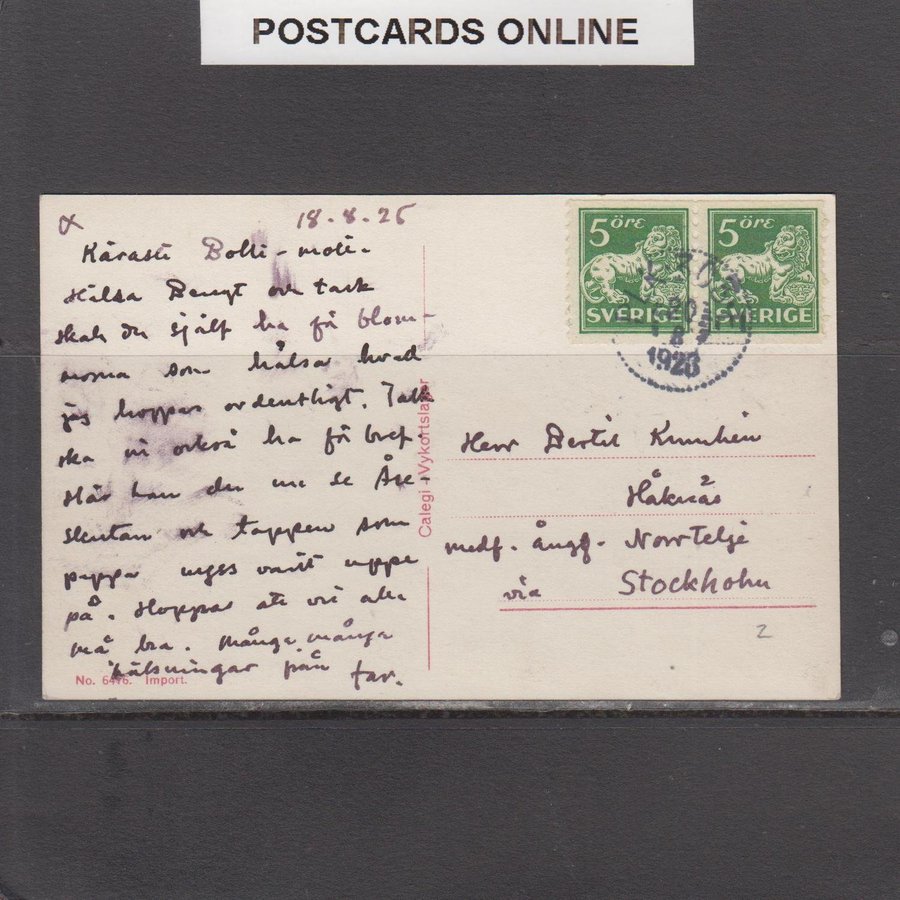 POSTCARDS ONLINE
18.8.25
Käraste Bolli-moli-
Hälsa Bengt och tack
skall du själf ha få blom-
morna som hälsar hvad
jag hoppas ordentligt. Tack
ska ni också ha få bref.
Här kan du nu se Åre-
skutan och toppen som
pappa nyss varit uppe
på. Hoppas att vi alla
må bra. Många många
hälsningar från
far.
No. 6476. Import.
Calegi - Vykortslager
5 öre
SVERIGE
5 öre
SVERIGE
1923
Herr Bertil
Håknäs
medf. ångf. Norrtelje
via Stockholm
2